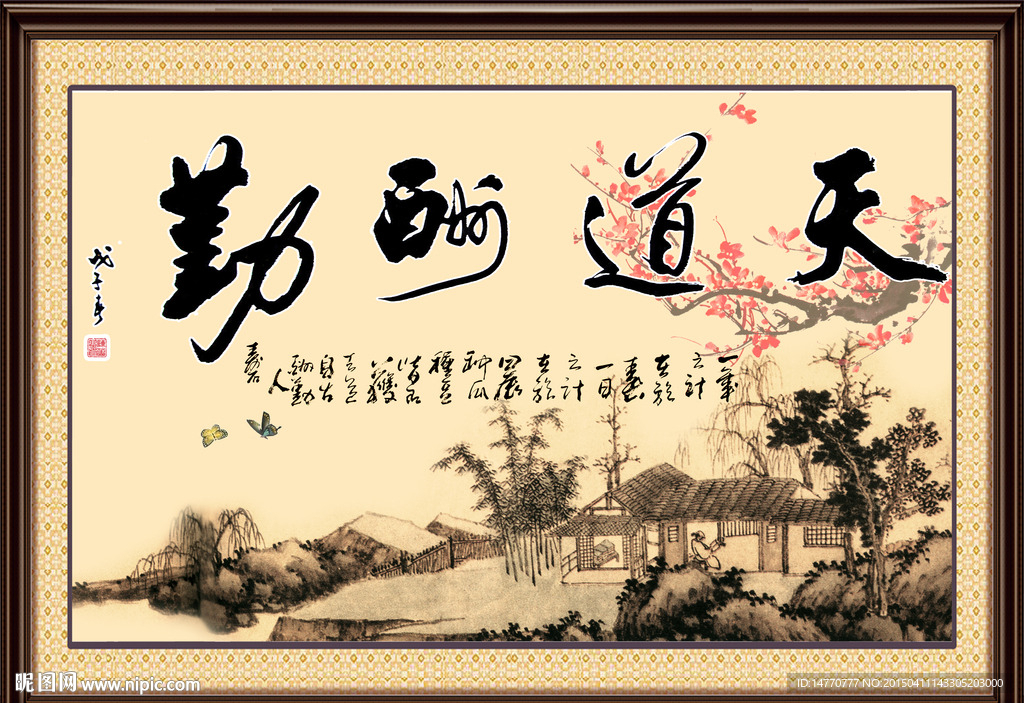 天道酬勤
一年
之計
在於
春
一日
之計
在於
種豆
自古
酬勤
人
戊子春
昵图网 www.nipic.com
ID:14770777 NO:20150411143305203000